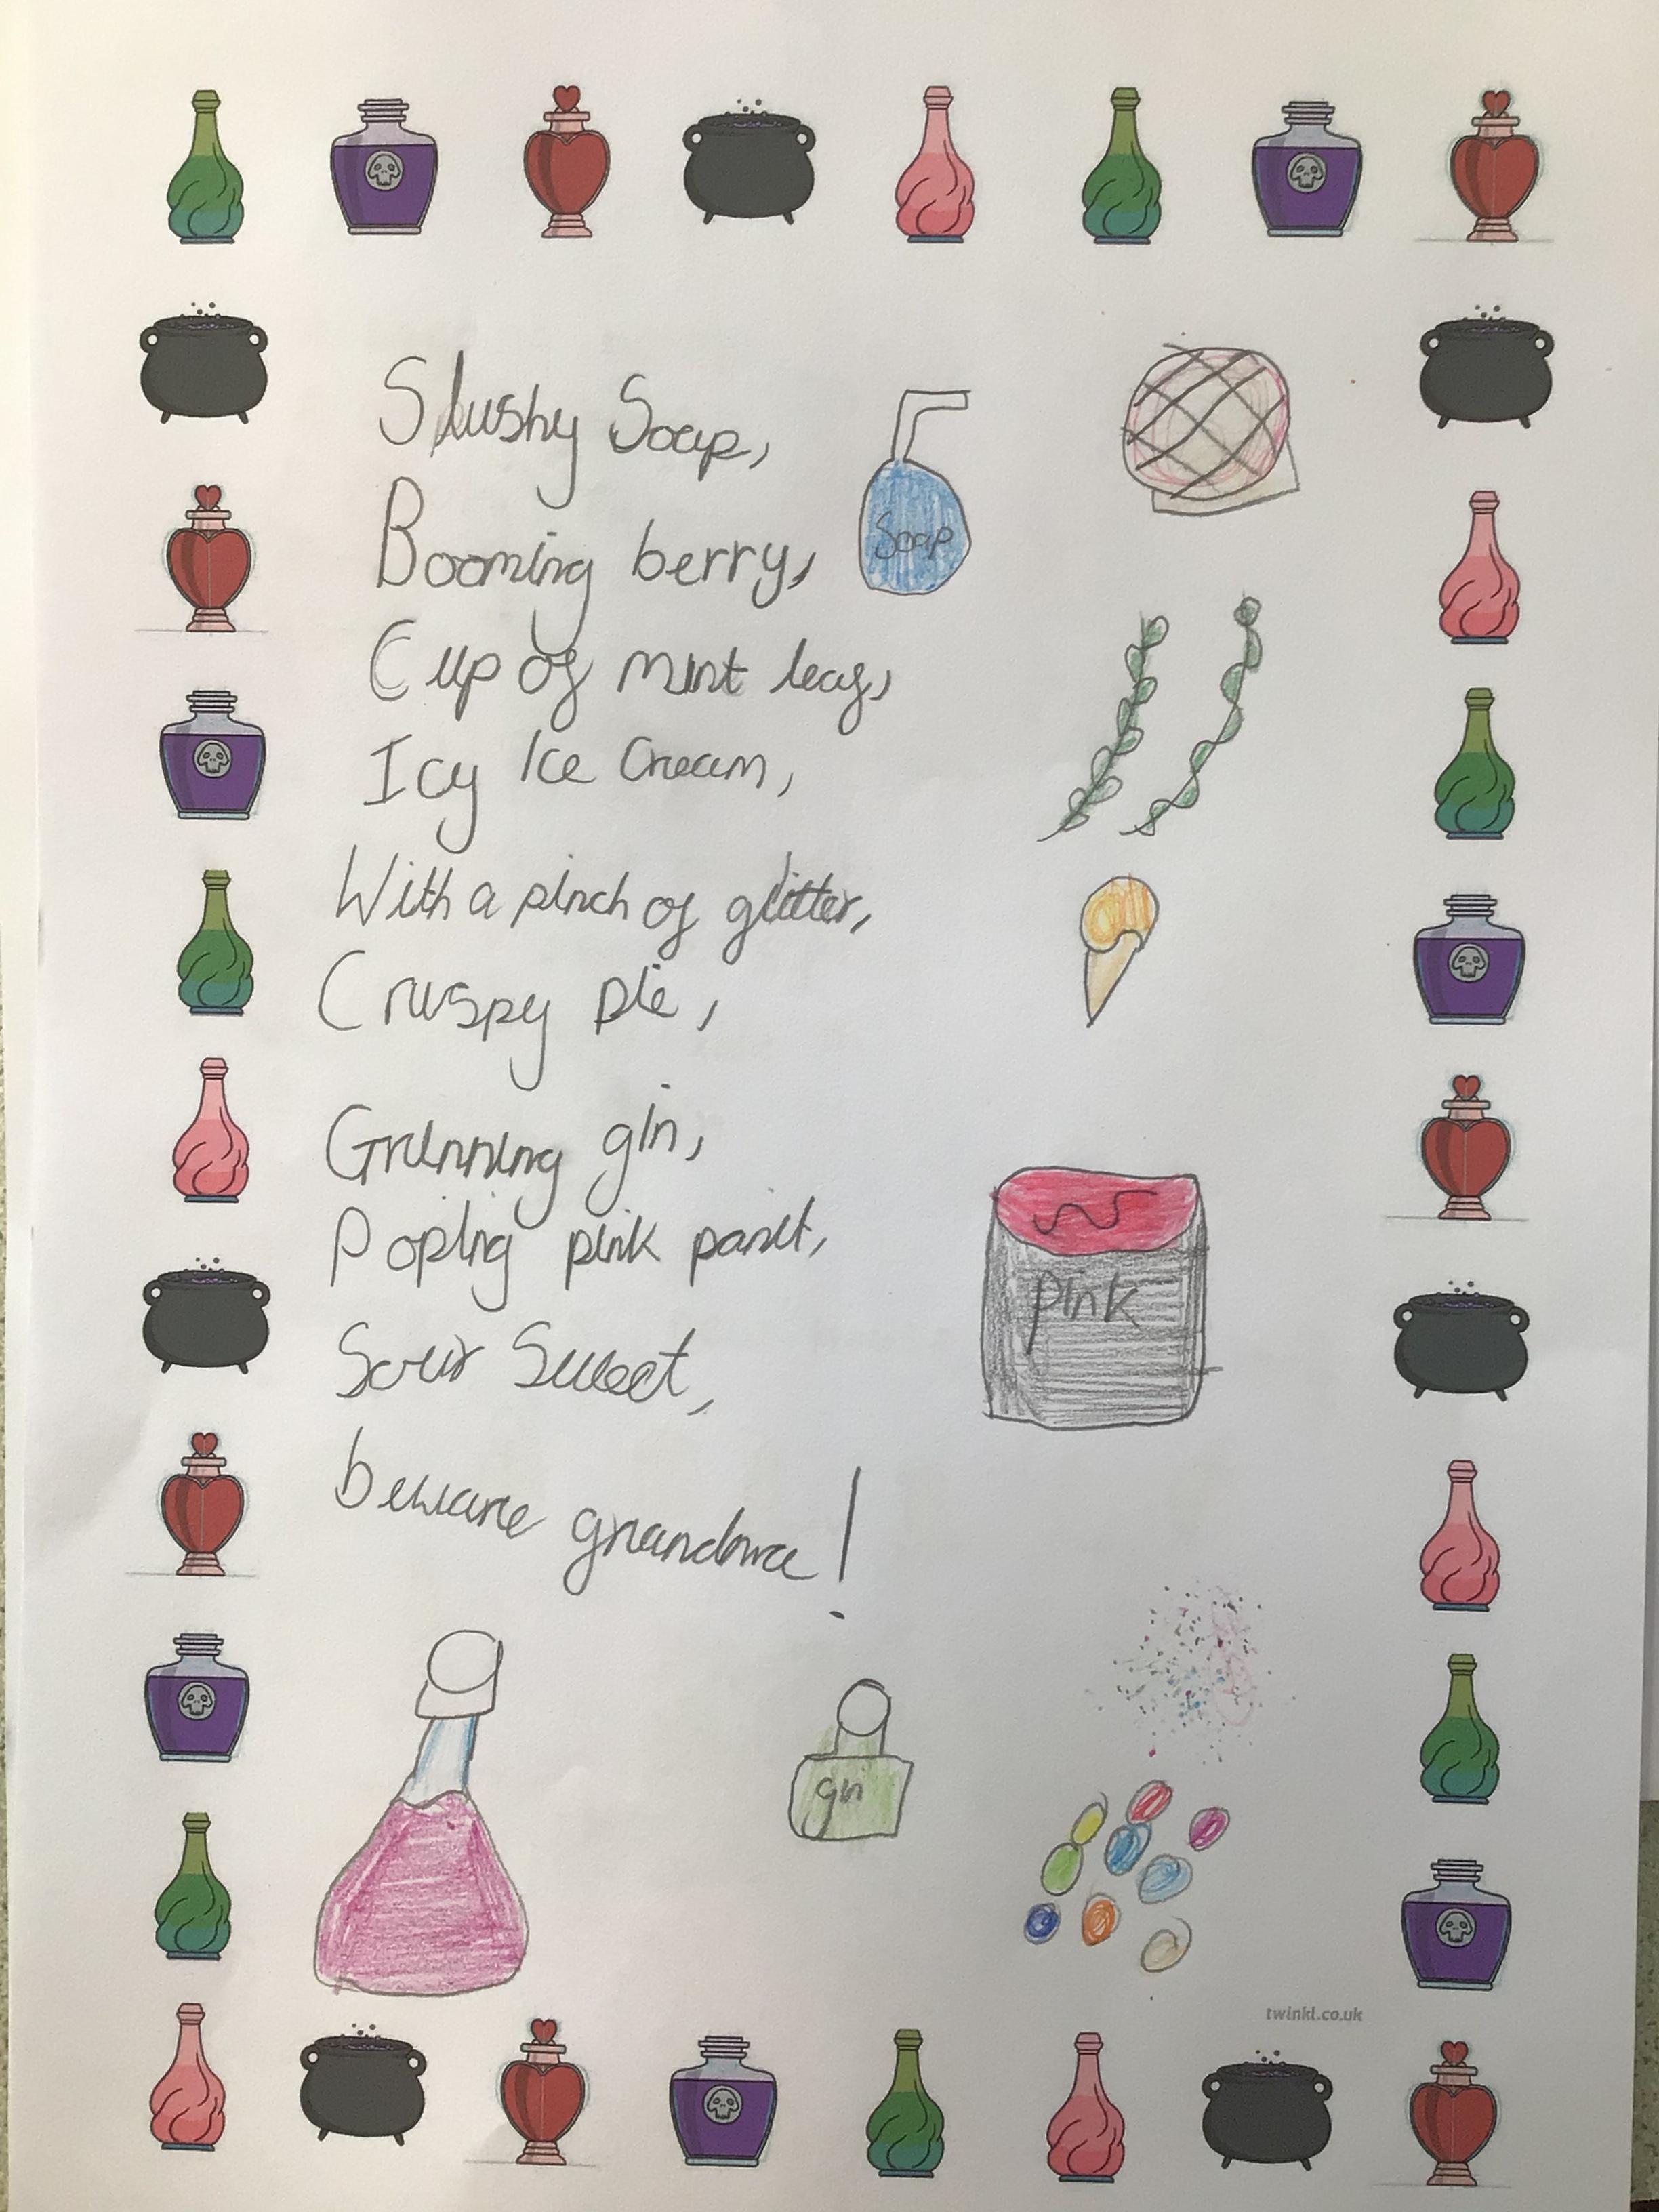 Slushy Soap,
Booming berry,
Cup of mint leaf,
Icy Ice Cream,
With a pinch of glitter,
Crispy pie,
Grinning gin,
Poping pink panit,
Sour Sweet,
beware grandma!
Soap
pink
gin
twinkl.co.uk